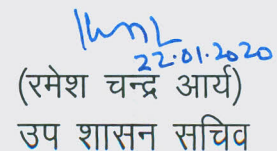 22.01.2020
(रमेश चन्द्र आर्य)
उप शासन सचिव